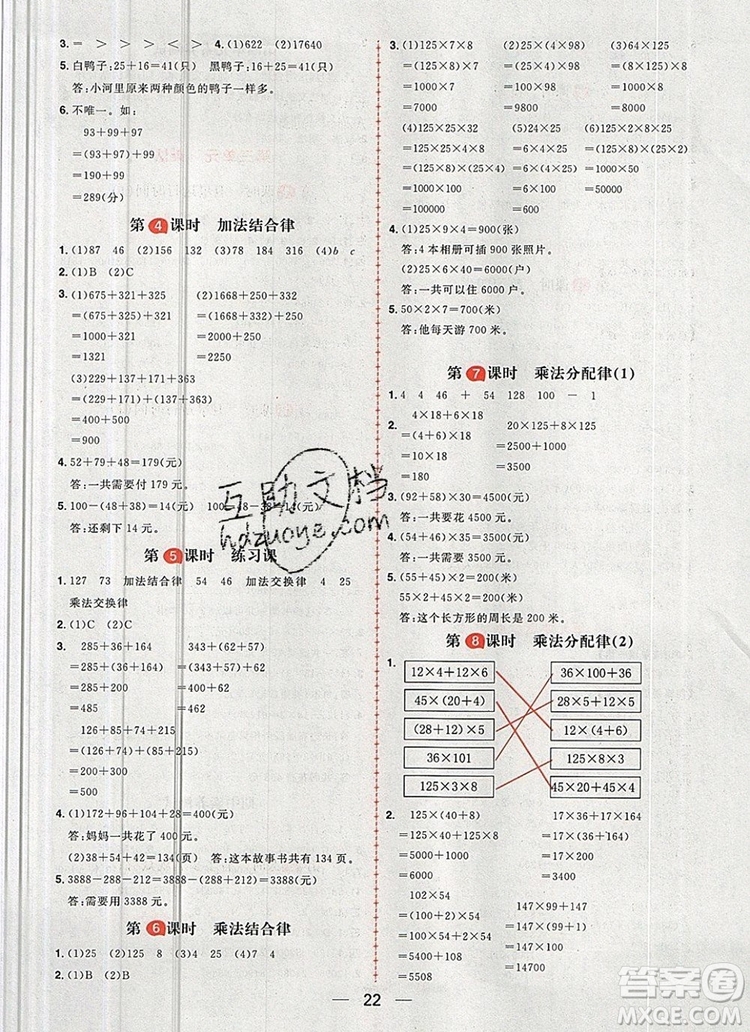 3. = > > > < > 4. (1)622 (2)17640
5. 白鸭子:25+16=41(只) 黑鸭子:16+25=41(只)
答:小河里原来两种颜色的鸭子一样多。
6. 不唯一。如:
93+99+97
=(93+97)+99
=190+99
=289(分)
第4课时 加法结合律
1. (1)87 46 (2)156 132 (3)78 184 316 (4)b c
2. (1)B (2)C
3. (1)675+321+325 (2)1668+250+332
=(675+325)+321 =(1668+332)+250
=1000+321 =2000+250
=1321 =2250
(3)229+137+171+363
=(229+171)+(137+363)
=400+500
=900
4. 52+79+48=179(元)
答:一共需要付179元。
5. 100-(48+38)=14(元) 100-48-38=14(元)
答:还剩下14元。
第5课时 练习课
1. 127 73 加法结合律 54 46 加法交换律 4 25
乘法交换律
2. (1)C (2)A
3. 285+36+164 343+(62+57)
=285+(36+164) =(343+57)+62
=285+200 =400+62
=485 =462
126+85+74+215
=(126+74)+(85+215)
=200+300
=500
4. (1)172+96+104+28=400(元)
答:妈妈一共花了400元。
(2)38+54+42=134(页) 答:这本故事书共有134页。
5. 3888-288-212=3888-(288+212)=3388(元)
答:需要用3388元。
第6课时 乘法结合律
1. (1)25 (2)125 8 (3)4 25 (4)7 4
2. (1)B (2)B
3. (1)125×7×8 (2)25×(4×98)
=(125×8)×7 =(25×4)×98
=1000×7 =100×98
=7000 =9800
(3)(125×6)×8
=(125×8)×6
=1000×6
=6000
(4)125×25×32 (5)6×4×25 (6)24×125
=(125×8)×(25×4) =6×(4×25) =3×(8×125)
=1000×100 =6×100 =3×1000
=100000 =600 =3000
4. (1)25×9×4=25×4×9=900(张)
答:4本相册可插900张照片。
(2)25×6×40=6000(户)
答:一共可以住6000户。
5. 50×2×7=700(米)
答:他每天游700米。
第7课时 乘法分配律(1)
1. 4 4 46 + 54 128 100 - 1
2. 4×18+6×18 20×125+8×125
=(4+6)×18 =(20+8)×125
=10×18 =28×125
=180 =3500
3. (92+58)×30=4500(元)
答:一共要花4500元。
4. (54+46)×35=3500(元)
答:一共需要3500元。
5. (55+45)×2=200(米)
55×2+45×2=200(米)
答:这个长方形的周长是200米。
第8课时 乘法分配律(2)
1.
12×4+12×6 36×100+36
45×(20+4) 28×5+12×5
(28+12)×5 12×(4+6)
36×101 125×8×3
125×3×8 45×20+45×4
2. 125×(40+8) 17×36+17×64
=125×40+125×8 =17×(36+64)
=5000+1000 =17×100
=6000 =1700
102×54 147×99+147
=(100+2)×54 =147×(99+1)
=100×54+2×54 =147×100
=5400+108 =14700
=5508
22
互助文档
hdzuoye.com
答案圈
MXQE.COM